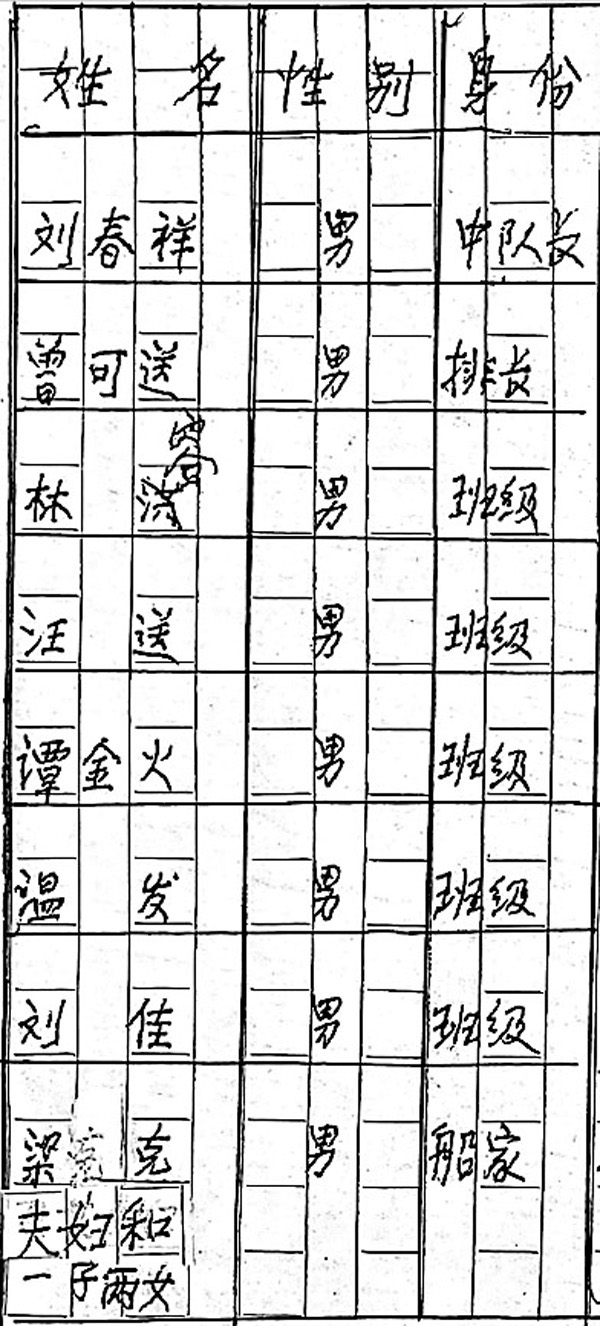 姓名 性别 身份
刘春祥 男 中队长
曾可送 男 排长
林 男 班级
汪送 男 班级
谭金火 男 班级
温发 男 班级
刘佳 男 班级
梁克 男 船家
夫妇和
一子两女